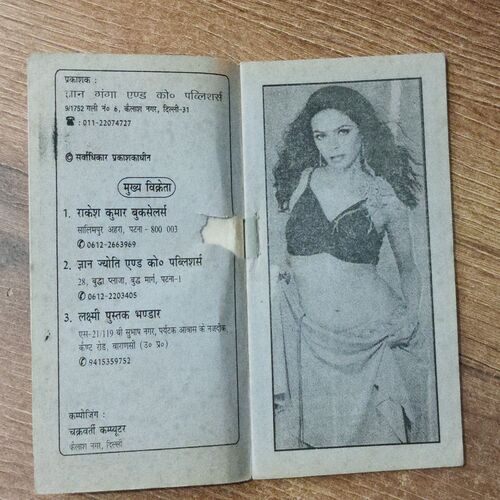 प्रकाशक :
ज्ञान गंगा एण्ड को० पब्लिशर्स
9/1752 गली नं० 6, कैलाश नगर, दिल्ली-31
☎ : 011-22074727
© सर्वाधिकार प्रकाशकाधीन
मुख्य विक्रेता
1. राकेश कुमार बुकसेलर्स
सालिमपुर अहरा, पटना - 800 003
✆ 0612-2663969
2. ज्ञान ज्योति एण्ड को० पब्लिशर्स
28, बुद्धा प्लाजा, बुद्ध मार्ग, पटना-1
✆ 0612-2203405
3. लक्ष्मी पुस्तक भण्डार
एस-21/119 बी सुभाष नगर, पर्यटक आवास के नजदीक,
कैण्ट रोड, वाराणसी (उ० प्र०)
✆ 9415359752
कम्पोजिंग :
चक्रवर्ती कम्प्यूटर
कैलाश नगर, दिल्ली